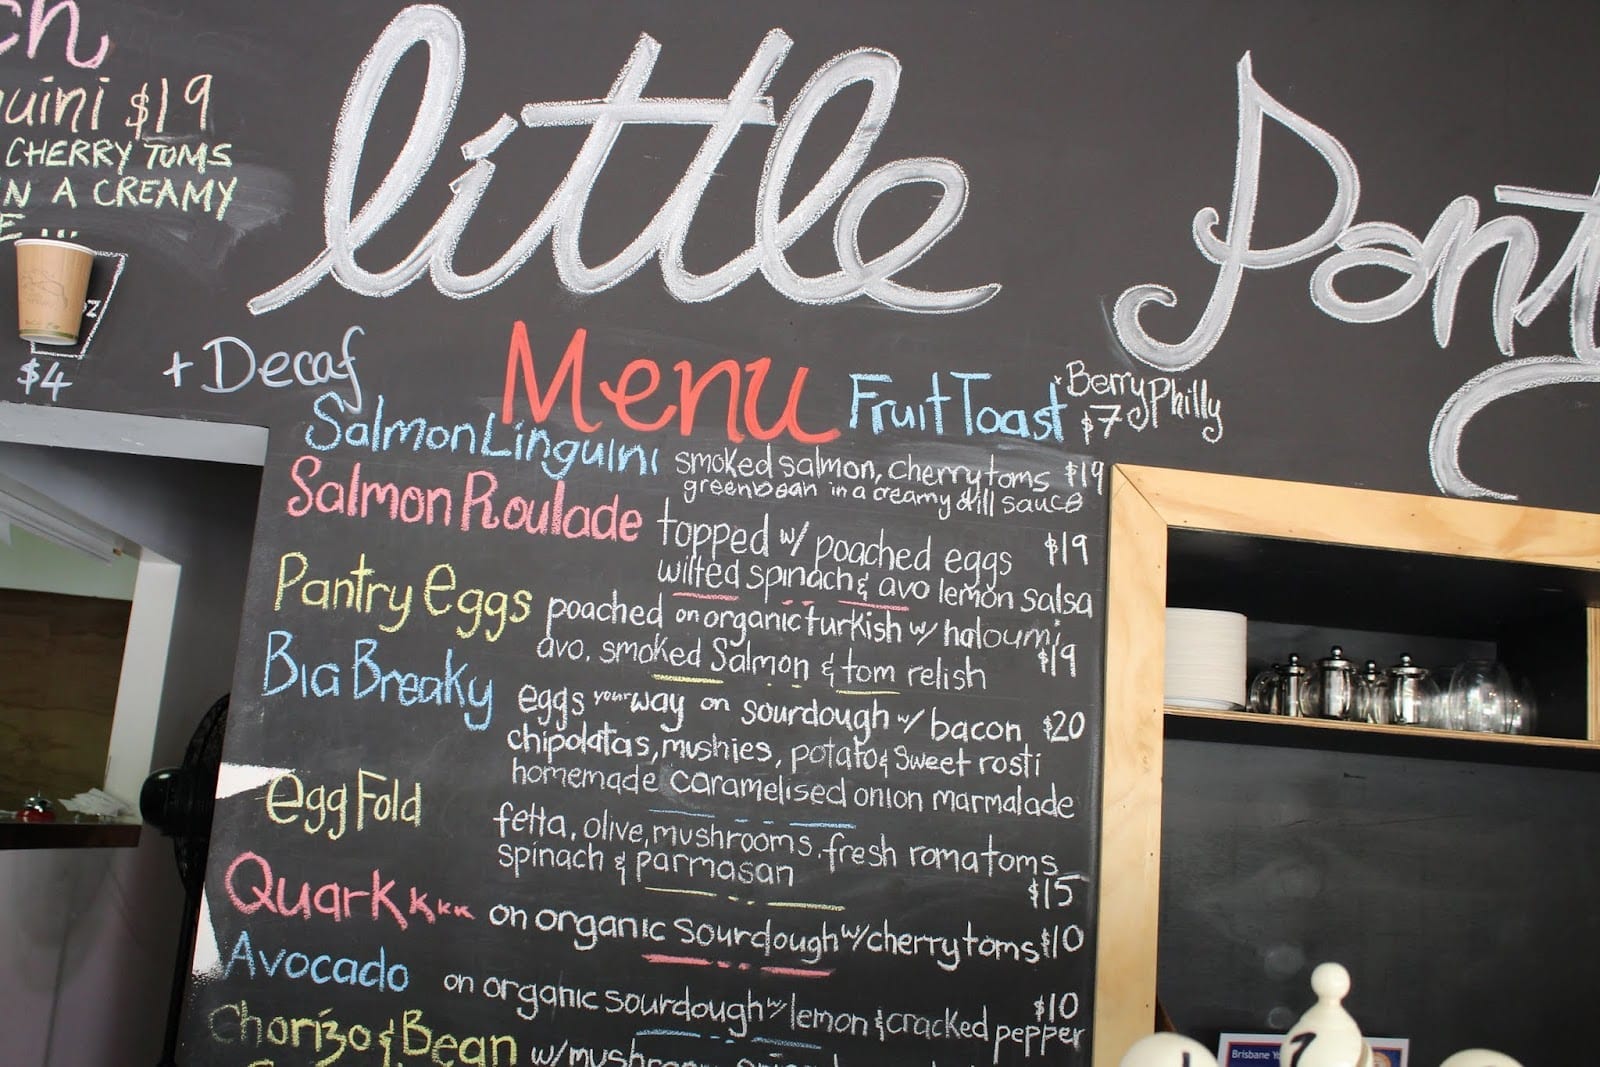 ch
uini $19
CHERRY TOMS
N A CREAMY
E ...
$4
+ Decaf
little Pant
Menu
Fruit Toast
Berry Philly
$7
Salmon Linguini smoked salmon, cherry toms $19
greenbean in a creamy dill sauce
Salmon Roulade topped w/ poached eggs $19
wilted spinach & avo lemon salsa
Pantry Eggs poached on organic turkish w/ haloumi
avo, smoked Salmon & tom relish $19
Big Breaky eggs your way on sourdough w/ bacon $20
chipolatas, mushies, potato & sweet rosti
homemade caramelised onion marmalade
egg Fold fetta, olive, mushrooms, fresh roma toms
spinach & parmasan $15
Quark k k k on organic sourdough w/ cherry toms $10
Avocado on organic sourdough w/ lemon & cracked pepper $10
Chorizo & Bean w/ mushroom
Brisbane